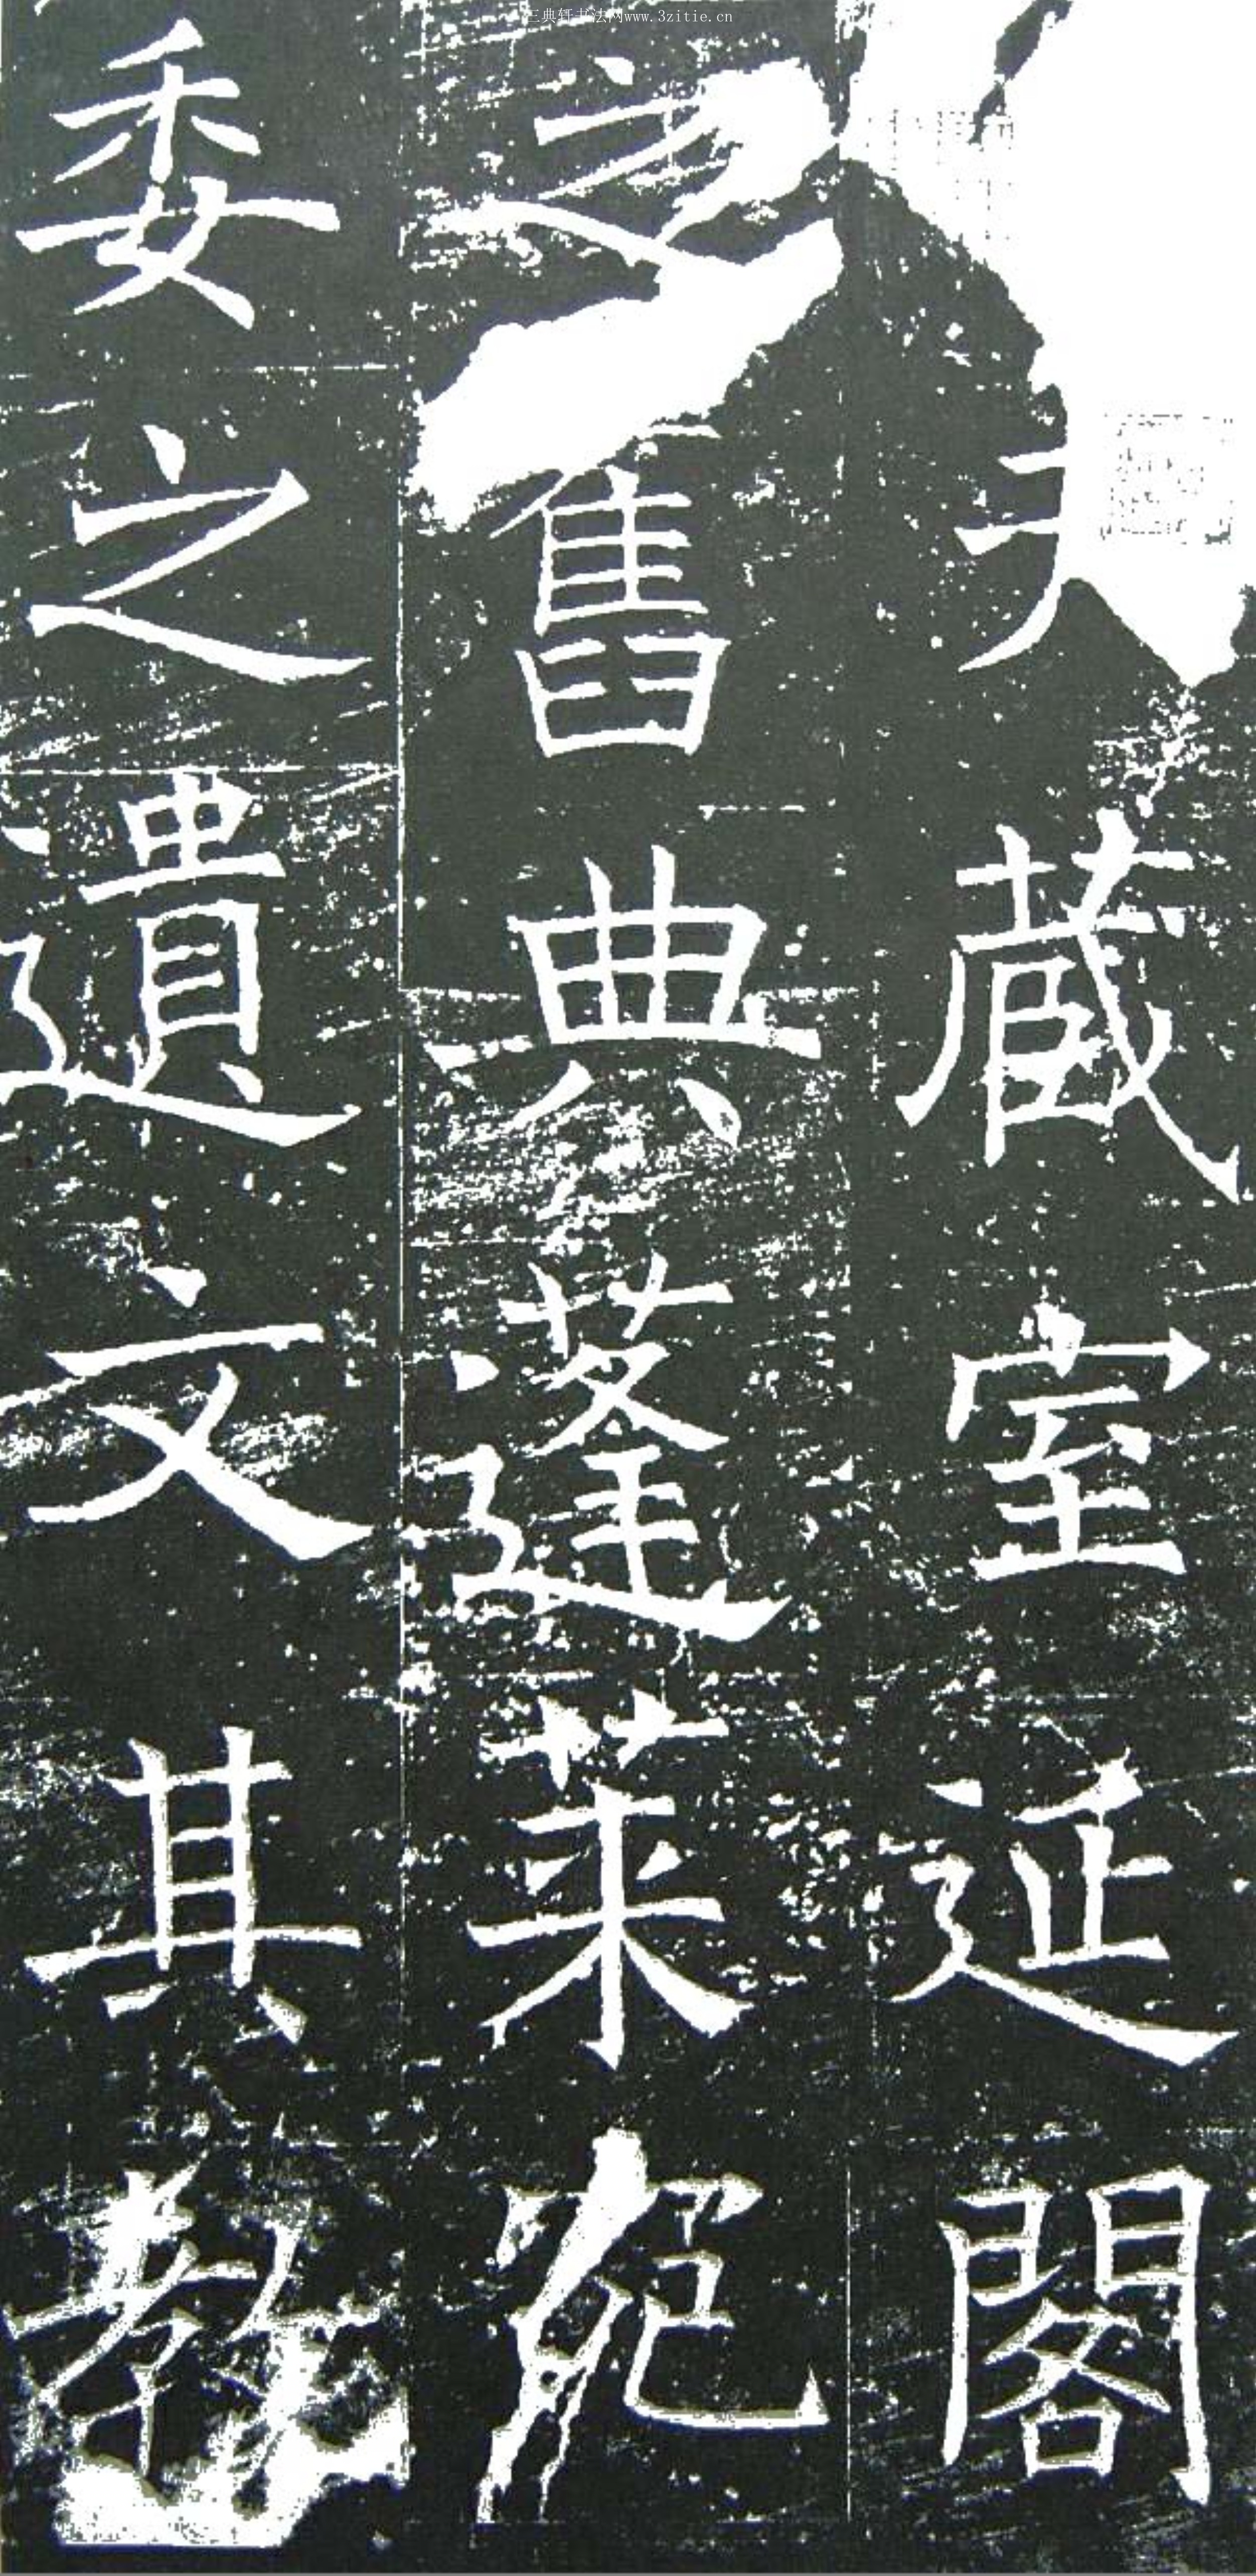 三典轩书法网www.3zitie.cn
藏室延閣
之舊典蓬莱宛
委之遺文其教